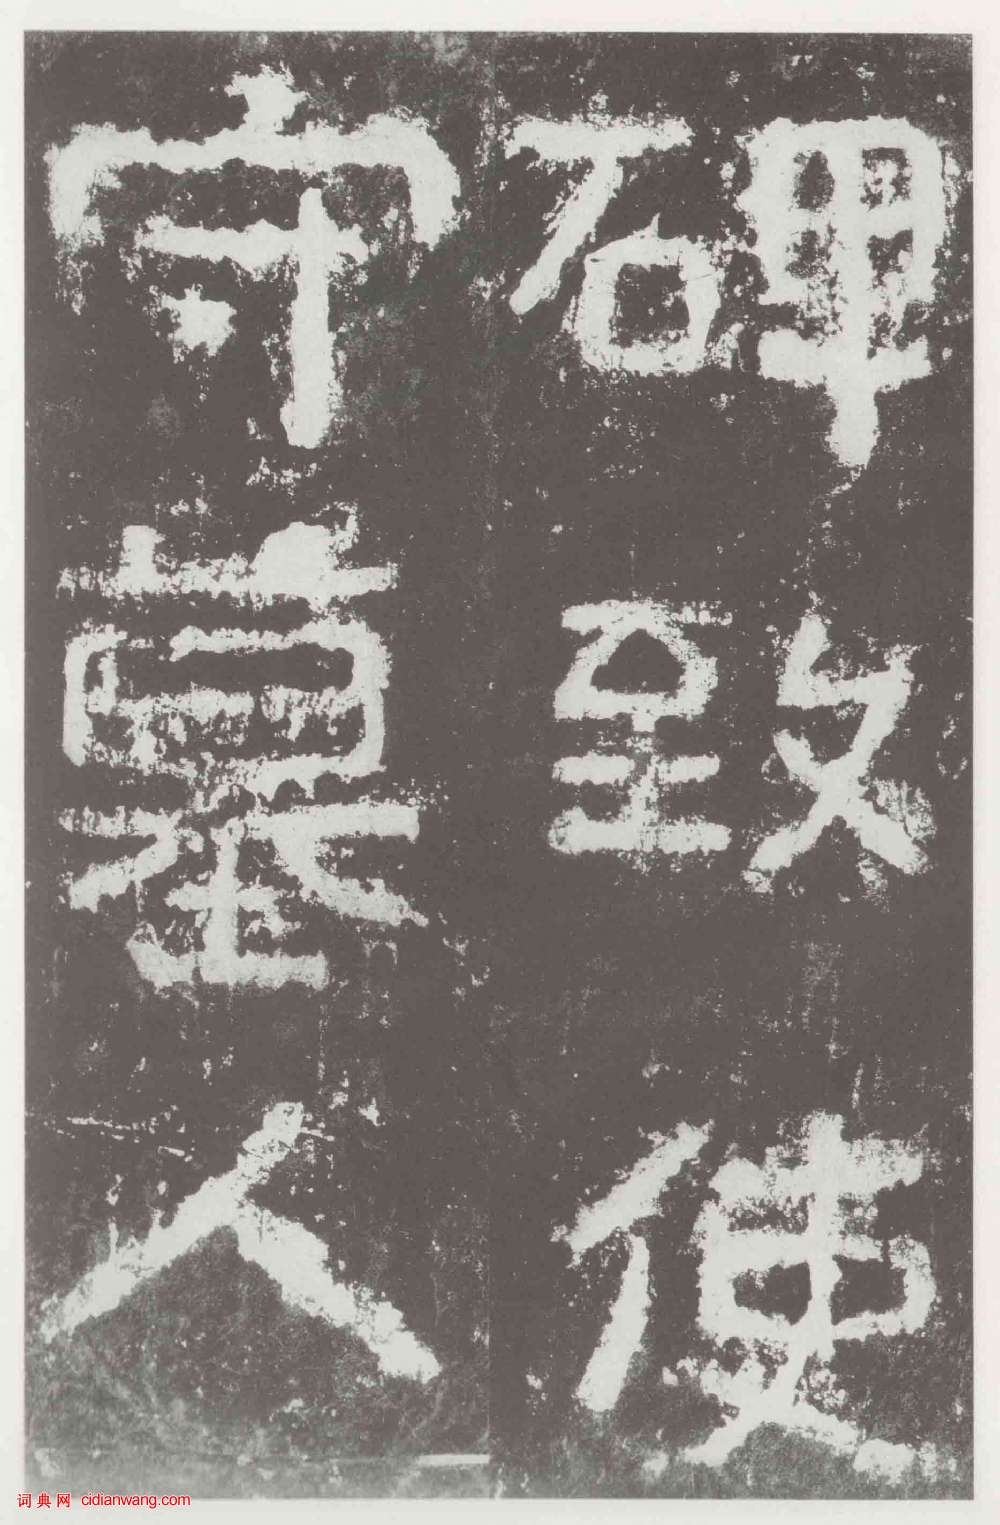 碑致使
守墓人
词典网 cidianwang.com